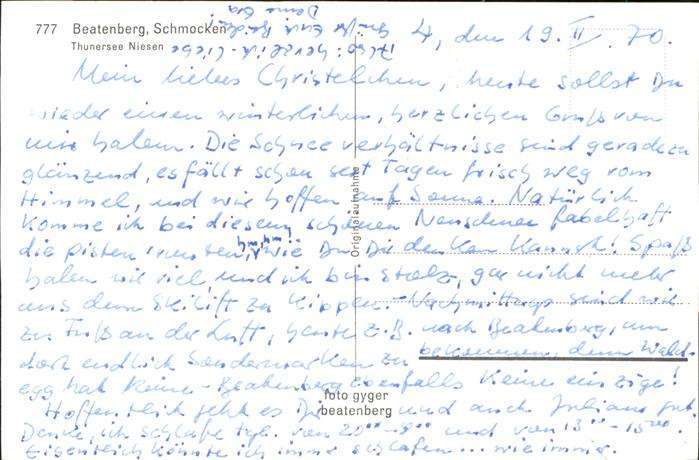 777 Beatenberg, Schmocken
Thunersee Niesen
4, den 19. II. 70.
Mein liebes Christelchen, heute sollst Du
wieder einen winterlichen, herzlichen Gruß von
mir haben. Die Schneeverhältnisse sind geradezu
glänzend, es fällt schon seit Tagen frisch weg vom
Himmel, und wir hoffen auf Sonne. Natürlich
komme ich bei diesem schönen Neuschnee fabelhaft
die Pisten runter, hm, hm, wie Du Dir denken kannst! Spaß
haben wir viel und ich bin stolz, gar nicht mehr
aus dem Skilift zu kippen. Nachmittags sind wir
zu Fuß an der Luft, heute z.B. nach Beatenberg, um
dort endlich Sondermarken zu bekommen, denn Wald-
egg hat keine - Beatenberg ebenfalls keine einzige!
Hoffentlich geht es Dir und auch Juliane gut.
Denke, ich schlafe tgl. von 20 00 - 8 00 und von 13 00 - 15 00.
Eigentlich könnte ich immer schlafen... wie immer.
Also: herzlich-liebe
Grüße Euch Beiden!
Deine
Originalaufnahme
foto gyger
beatenberg